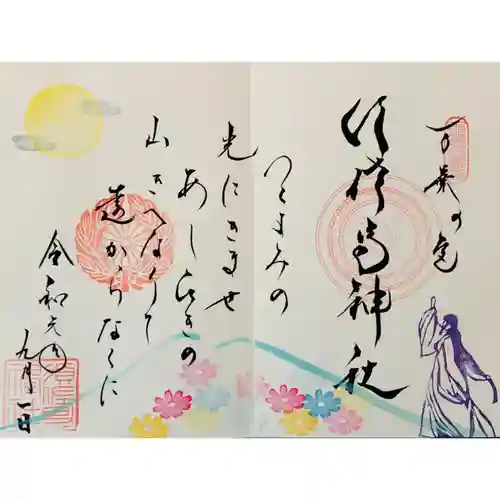 万葉の
神社
つくよみの
光にきませ
あしひきの
山きへなりて
遠からなくに
令和元年九月一日